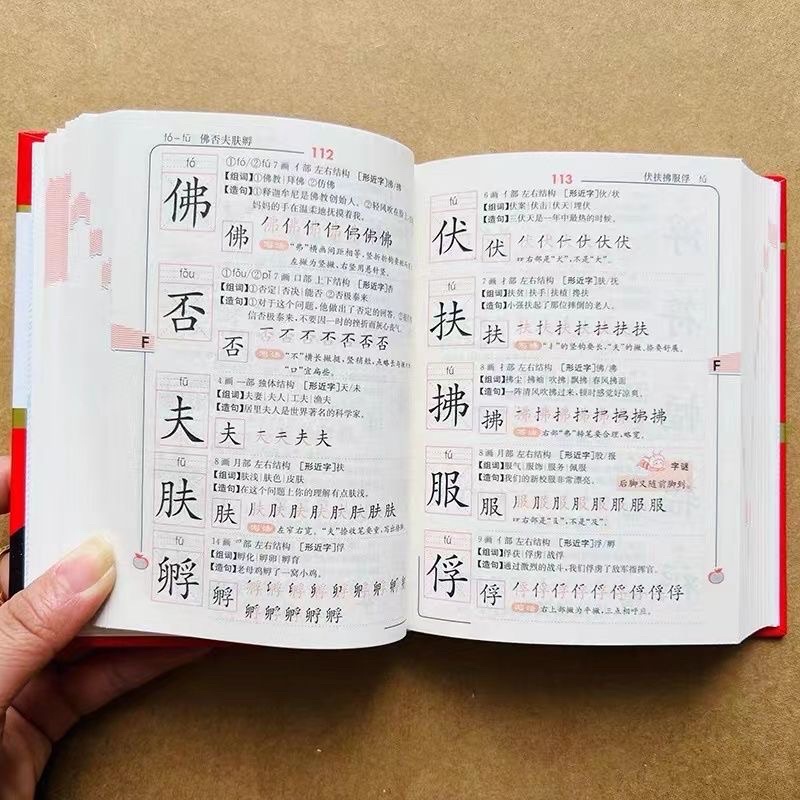 fó-fū 佛否夫肤孵
112
fó
佛
①fó/②fú 7画 亻部 左右结构 [形近字]拂
[组词]①佛教|拜佛 ②仿佛
[造句]①释迦牟尼是佛教创始人。②轻风吹在脸上
妈妈的手在温柔地抚摸着我。
佛
写法 “弗”横画间距相等,竖折折钩要
左撇为竖撇,右竖用悬针竖。
fǒu
否
①fǒu/②pǐ 7画 口部 上下结构
[组词]①否定|否决|能否 ②否极泰来
[造句]①对于这个问题,他做出了否定的答案。
信否极泰来,不要因一时的挫折而灰心丧气。
否
写法 “不”横长撇挺,竖稍短,点略长
“口”宜扁些。
F
fū
夫
4画 一部 独体结构 [形近字]天/未
[组词]夫妻|夫人|工夫|渔夫
[造句]居里夫人是世界著名的科学家。
夫
fū
肤
8画 月部 左右结构 [形近字]扶
[组词]肤浅|肤色|皮肤
[造句]在这个问题上你的理解有点肤浅。
肤
写法 左窄右宽。“夫”捺收笔要重,写出
fū
孵
14画 爫部 左右结构 [形近字]俘
[组词]孵化|孵卵|孵育
[造句]老母鸡孵了一窝小鸡。
孵
113
伏扶拂服俘 fú
fú
伏
6画 亻部 左右结构 [形近字]伏/状
[组词]伏案|伏击|伏天|埋伏
[造句]三伏天是一年中最热的时候。
伏
右部是“犬”,不是“大”。
fú
扶
7画 扌部 左右结构 [形近字]肤/抚
[组词]扶贫|扶手|扶植|搀扶
[造句]小强扶起了那位摔倒的老人。
扶
写法 “扌”的竖钩要长,“夫”的撇、捺要舒展。
F
fú
拂
8画 扌部 左右结构 [形近字]佛/沸
[组词]拂尘|拂袖|吹拂|飘拂|春风拂面
[造句]一阵清风吹拂过来,顿时感觉好凉爽。
拂
写法 右部“弗”转笔要合理,略宽。
fú
服
8画 月部 左右结构 [形近字]胶/报
[组词]服气|服饰|服务|佩服
[造句]我们的新校服非常漂亮。
字谜
后脚又随前脚到。
服
fú
俘
9画 亻部 左右结构 [形近字]浮/孵
[组词]俘获|俘虏|战俘
[造句]通过激烈的战斗,我们俘虏了敌军指挥官。
俘
写法 右上部撇为平撇,三点相呼应。